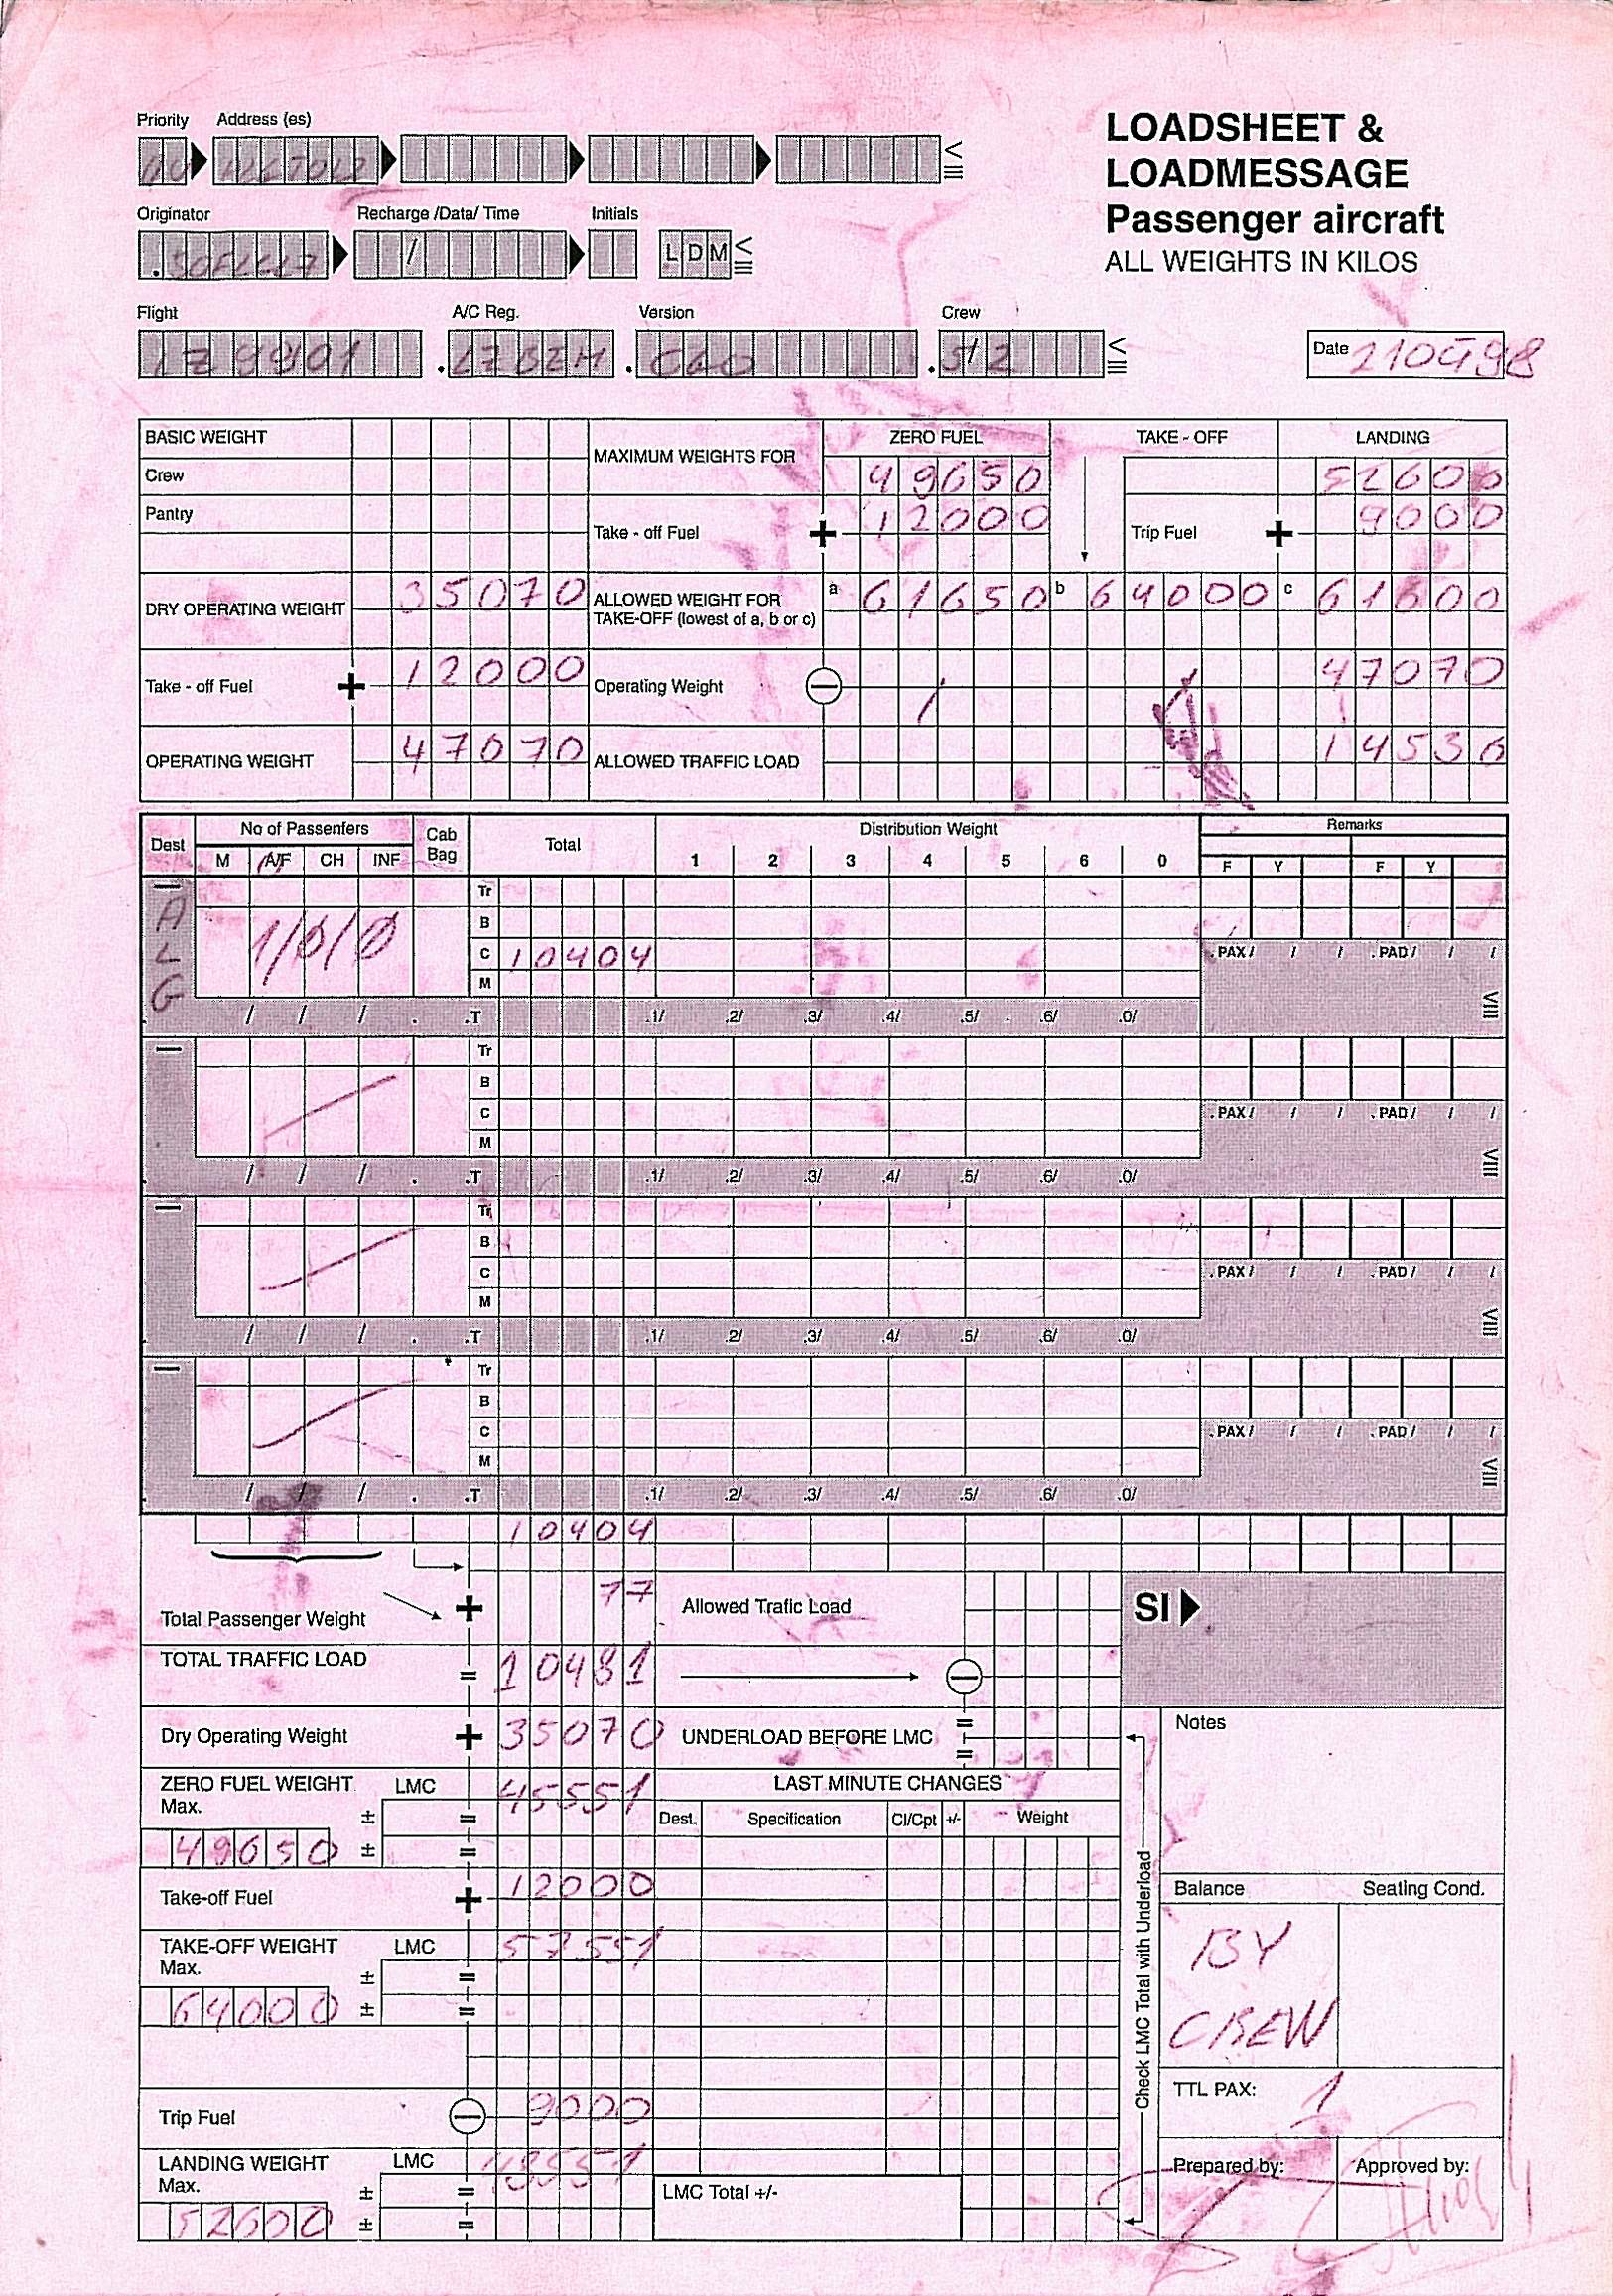 Priority Address (es)
LOADSHEET &
LOADMESSAGE
Passenger aircraft
ALL WEIGHTS IN KILOS
Originator Recharge /Data/ Time Initials
/ L D M
Flight A/C Reg. Version Crew
LZBZH C60 5/2
Date 210498
BASIC WEIGHT
Crew
Pantry
MAXIMUM WEIGHTS FOR
ZERO FUEL TAKE - OFF LANDING
49650 52600
Take - off Fuel + 12000 Trip Fuel + 9000
DRY OPERATING WEIGHT 35070 ALLOWED WEIGHT FOR TAKE-OFF (lowest of a, b or c) a 61650 b 64000 c 61600
Take - off Fuel + 12000 Operating Weight − 47070
OPERATING WEIGHT 47070 ALLOWED TRAFFIC LOAD 14530
Dest No of Passenfers Cab Bag Total Distribution Weight Remarks
M A/F CH INF 1 2 3 4 5 6 0 F Y F Y
ALG
Tr
B
1/0/0
C 10404 .PAX/ / / .PAD/ / /
M
/ / / . .T .1/ .2/ .3/ .4/ .5/ .6/ .0/
Tr
B
C .PAX/ / / .PAD/ / /
M
/ / / . .T .1/ .2/ .3/ .4/ .5/ .6/ .0/
Tr
B
C .PAX/ / / .PAD/ / /
M
/ / / . .T .1/ .2/ .3/ .4/ .5/ .6/ .0/
Tr
B
C .PAX/ / / .PAD/ / /
M
/ / / . .T .1/ .2/ .3/ .4/ .5/ .6/ .0/
10404
Total Passenger Weight + 77 Allowed Trafic Load SI
TOTAL TRAFFIC LOAD = 10481 −
Dry Operating Weight + 35070 UNDERLOAD BEFORE LMC = =
Notes
ZERO FUEL WEIGHT LMC 45551 LAST MINUTE CHANGES
Max. ± =
49650 ± =
Dest. Specification Cl/Cpt +/- Weight
Take-off Fuel + 12000
Balance Seating Cond.
BY
CREW
TAKE-OFF WEIGHT LMC 57551
Max. ± =
64000 ± =
Check LMC Total with Underload
TTL PAX: 1
Trip Fuel − 9000
LANDING WEIGHT LMC 48551
Max. ± =
52600 ± =
LMC Total +/-
Prepared by: Approved by: